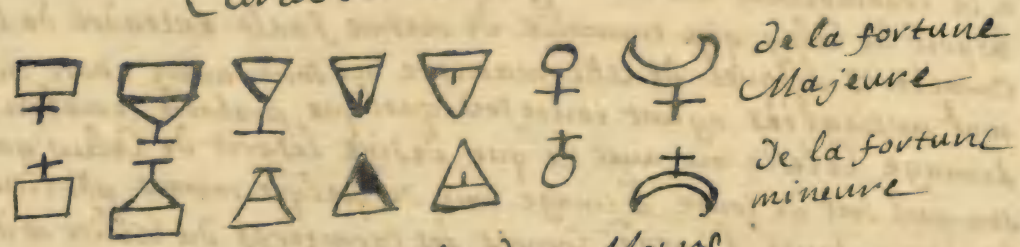 de la fortune
Majeure
de la fortune
mineure